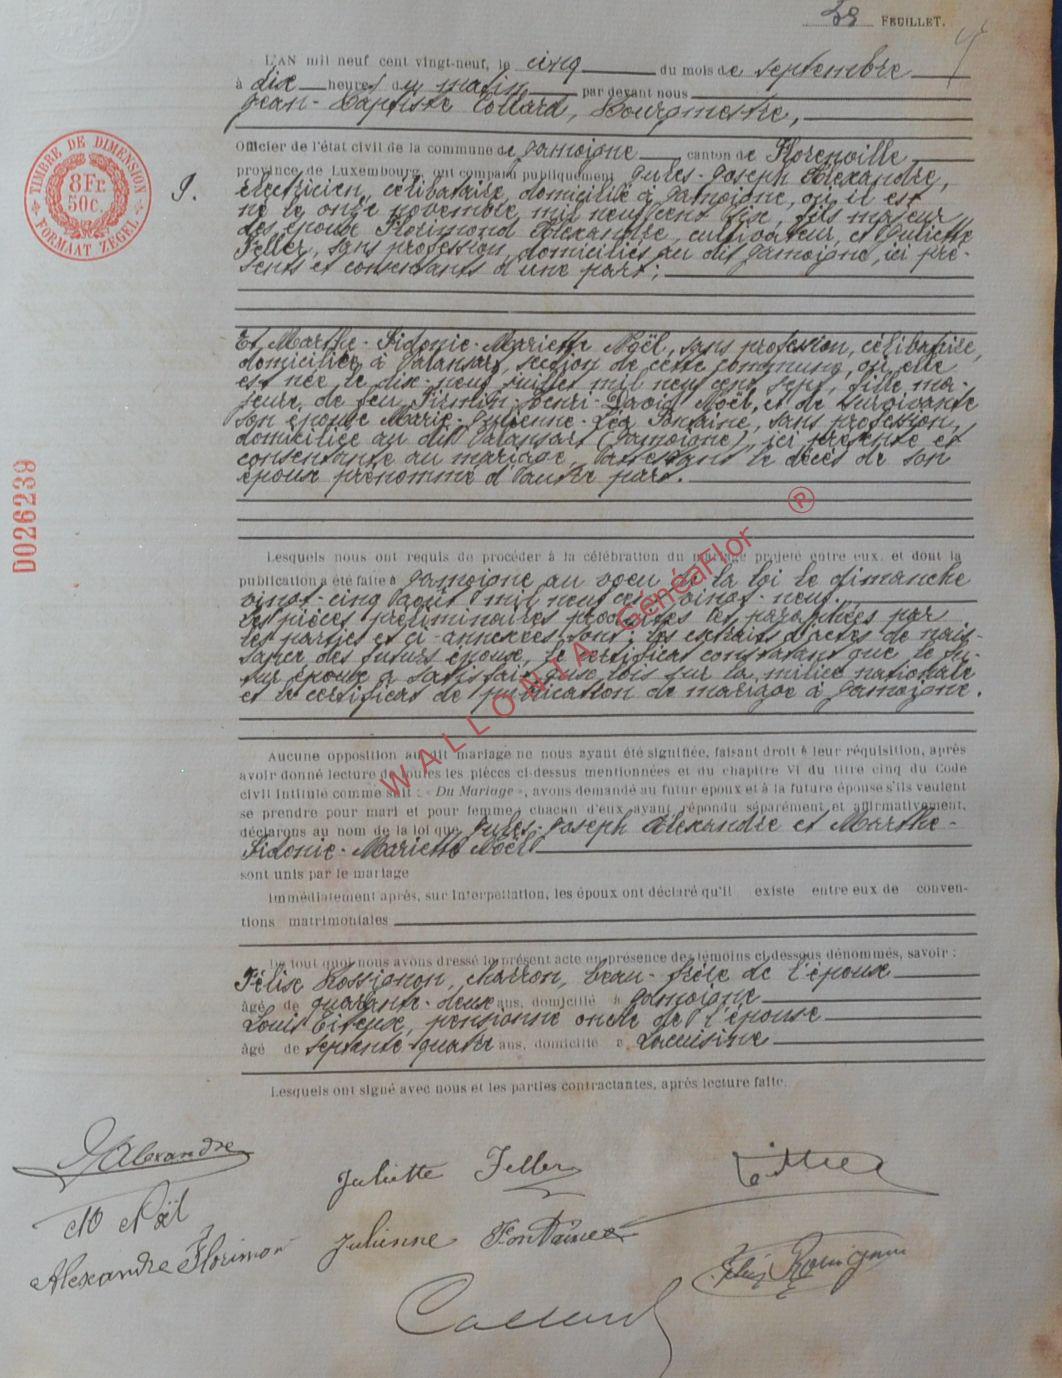 FEUILLET.
L'AN mil neuf cent vingt-neuf, le cinq du mois de septembre
à dix heures du matin par devant nous
Jean-Baptiste Collard, Bourgmestre,
Officier de l'état civil de la commune de Jamoigne canton de Florenville
province de Luxembourg, ont comparu publiquement Jules-Joseph Alexandre,
9. électricien, célibataire, domicilié à Jamoigne, où il est
né le onze novembre mil neuf cent six, fils majeur
des époux Florimond Alexandre, cultivateur, et Juliette
Feller, sans profession, domiciliés au dit Jamoigne, ici pré-
sents et consentants d'une part;
TIMBRE DE DIMENSION
8Fr.
50c.
FORMAAT ZEGEL
Et Marthe-Sidonie-Mariette Noël, sans profession, célibataire,
domiciliée à Valansart, section de cette commune, où elle
est née le dix-neuf juillet mil neuf cent sept, fille ma-
jeure de feu Firmin-Henri-David Noël, et de survivante
son épouse Marie-Julienne-Léa Fontaine, sans profession,
domiciliée au dit Valansart (Jamoigne), ici présente et
consentante au mariage, attestant le décès de son
époux prénommé d'autre part.
D026239
Lesquels nous ont requis de procéder à la célébration du mariage projeté entre eux, et dont la
publication a été faite à Jamoigne au voeu de la loi le dimanche
vingt-cinq août mil neuf cent vingt-neuf.
Les pièces préliminaires produites et paraphées par
les parties et ci-annexées sont: les extraits d'actes de nais-
sance des futurs époux, le certificat constatant que le fu-
tur époux a satisfait aux lois sur la milice nationale
et le certificat de publication de mariage à Jamoigne.
WALLONIA GénéaFlor ®
Aucune opposition au dit mariage ne nous ayant été signifiée, faisant droit à leur réquisition, après
avoir donné lecture de toutes les pièces ci-dessus mentionnées et du chapitre VI du titre cinq du Code
civil intitulé comme suit : « Du Mariage », avons demandé au futur époux et à la future épouse s'ils veulent
se prendre pour mari et pour femme; chacun d'eux ayant répondu séparément et affirmativement,
déclarons au nom de la loi que Jules-Joseph Alexandre et Marthe-
Sidonie-Mariette Noël
sont unis par le mariage
Immédiatement après, sur interpellation, les époux ont déclaré qu'il existe entre eux de conven-
tions matrimoniales
De tout quoi nous avons dressé le présent acte en présence des témoins ci-dessous dénommés, savoir :
Félix Rossignon, charron, beau-frère de l'époux
âgé de quarante-deux ans, domicilié à Jamoigne
Louis pensionné oncle de l'épouse
âgé de septante-quatre ans, domicilié à Lacuisine
Lesquels ont signé avec nous et les parties contractantes, après lecture faite.
J Alexandre
Juliette Feller
M Noël
Julienne Fontaine
Alexandre Florimond
Félix Rossignon
Collard